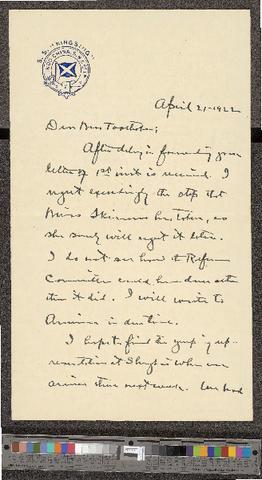 S.S. "KINGSING"
INDO CHINA S.N. CO. LD
April 21-1922
Dear Miss
After delay in forwarding your
letter of 1st inst is received. I
regret exceedingly the step that
Miss Skinner has taken, as
she surely will regret it later.
I do not see how the Reference
Committee could have done other
than it did. I will write to
in due time.
I hope to find the group
at when we
arrive there next week. We had